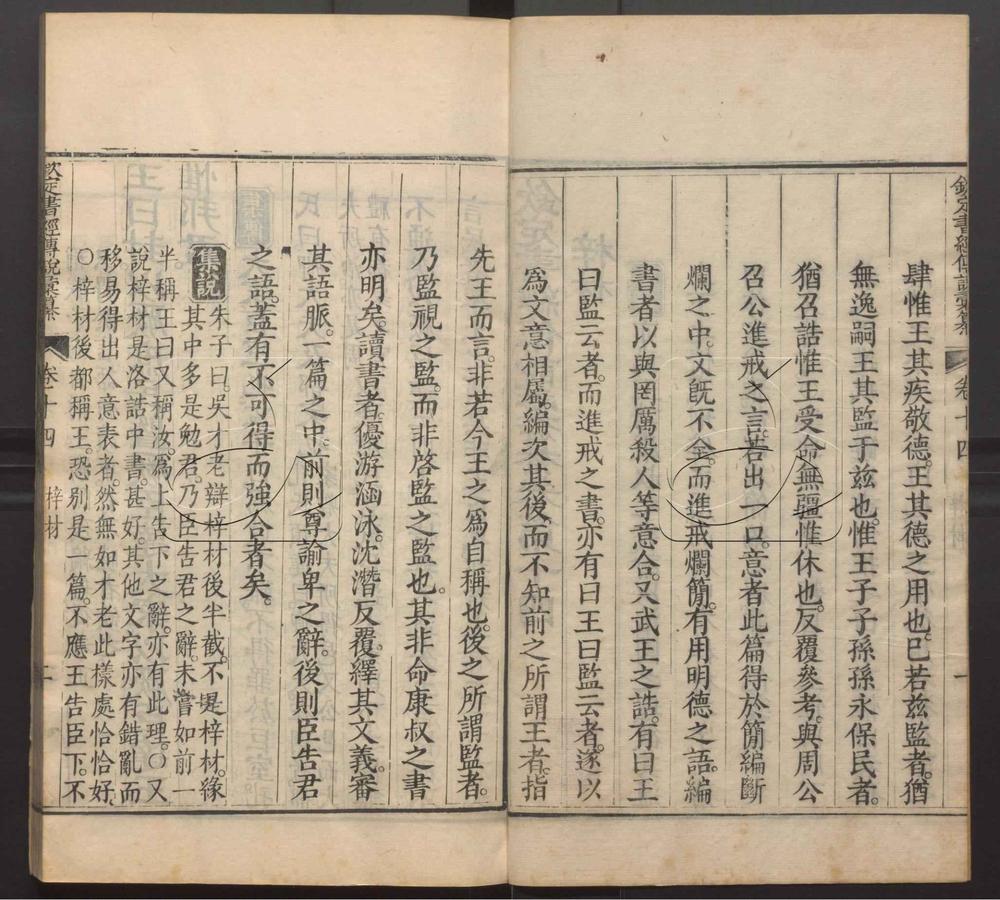 欽定書經傳說彙纂
卷十四
一
肆惟王其疾敬德王其德之用也已若茲監者猶
無逸嗣王其監于茲也惟王子子孫孫永保民者
猶召誥惟王受命無疆惟休也反覆參考與周公
召公進戒之言若出一口意者此篇得於簡編斷
爛之中文旣不全而進戒爛簡有用明德之語編
書者以與罔厲殺人等意合又武王之誥有曰王
曰監云者而進戒之書亦有曰王曰監云者遂以
爲文意相屬編次其後而不知前之所謂王者指
先王而言非若今王之爲自稱也後之所謂監者
乃監視之監而非啓監之監也其非命康叔之書
亦明矣讀書者優游涵泳沈潛反覆繹其文義審
其語脈一篇之中前則尊諭卑之辭後則臣告君
之語蓋有不可得而強合者矣
集說 朱子曰吳才老辯梓材後半截不是梓材緣
其中多是勉君乃臣告君之辭未嘗如前一
半稱王曰又稱汝爲上告下之辭亦有此理○又
說梓材是洛誥中書甚好其他文字亦有錯亂而
移易得出人意表者然無如才老此樣處恰恰好
○梓材後都稱王恐別是一篇不應王告臣下不
欽定書經傳說彙纂
卷十四
梓材
二